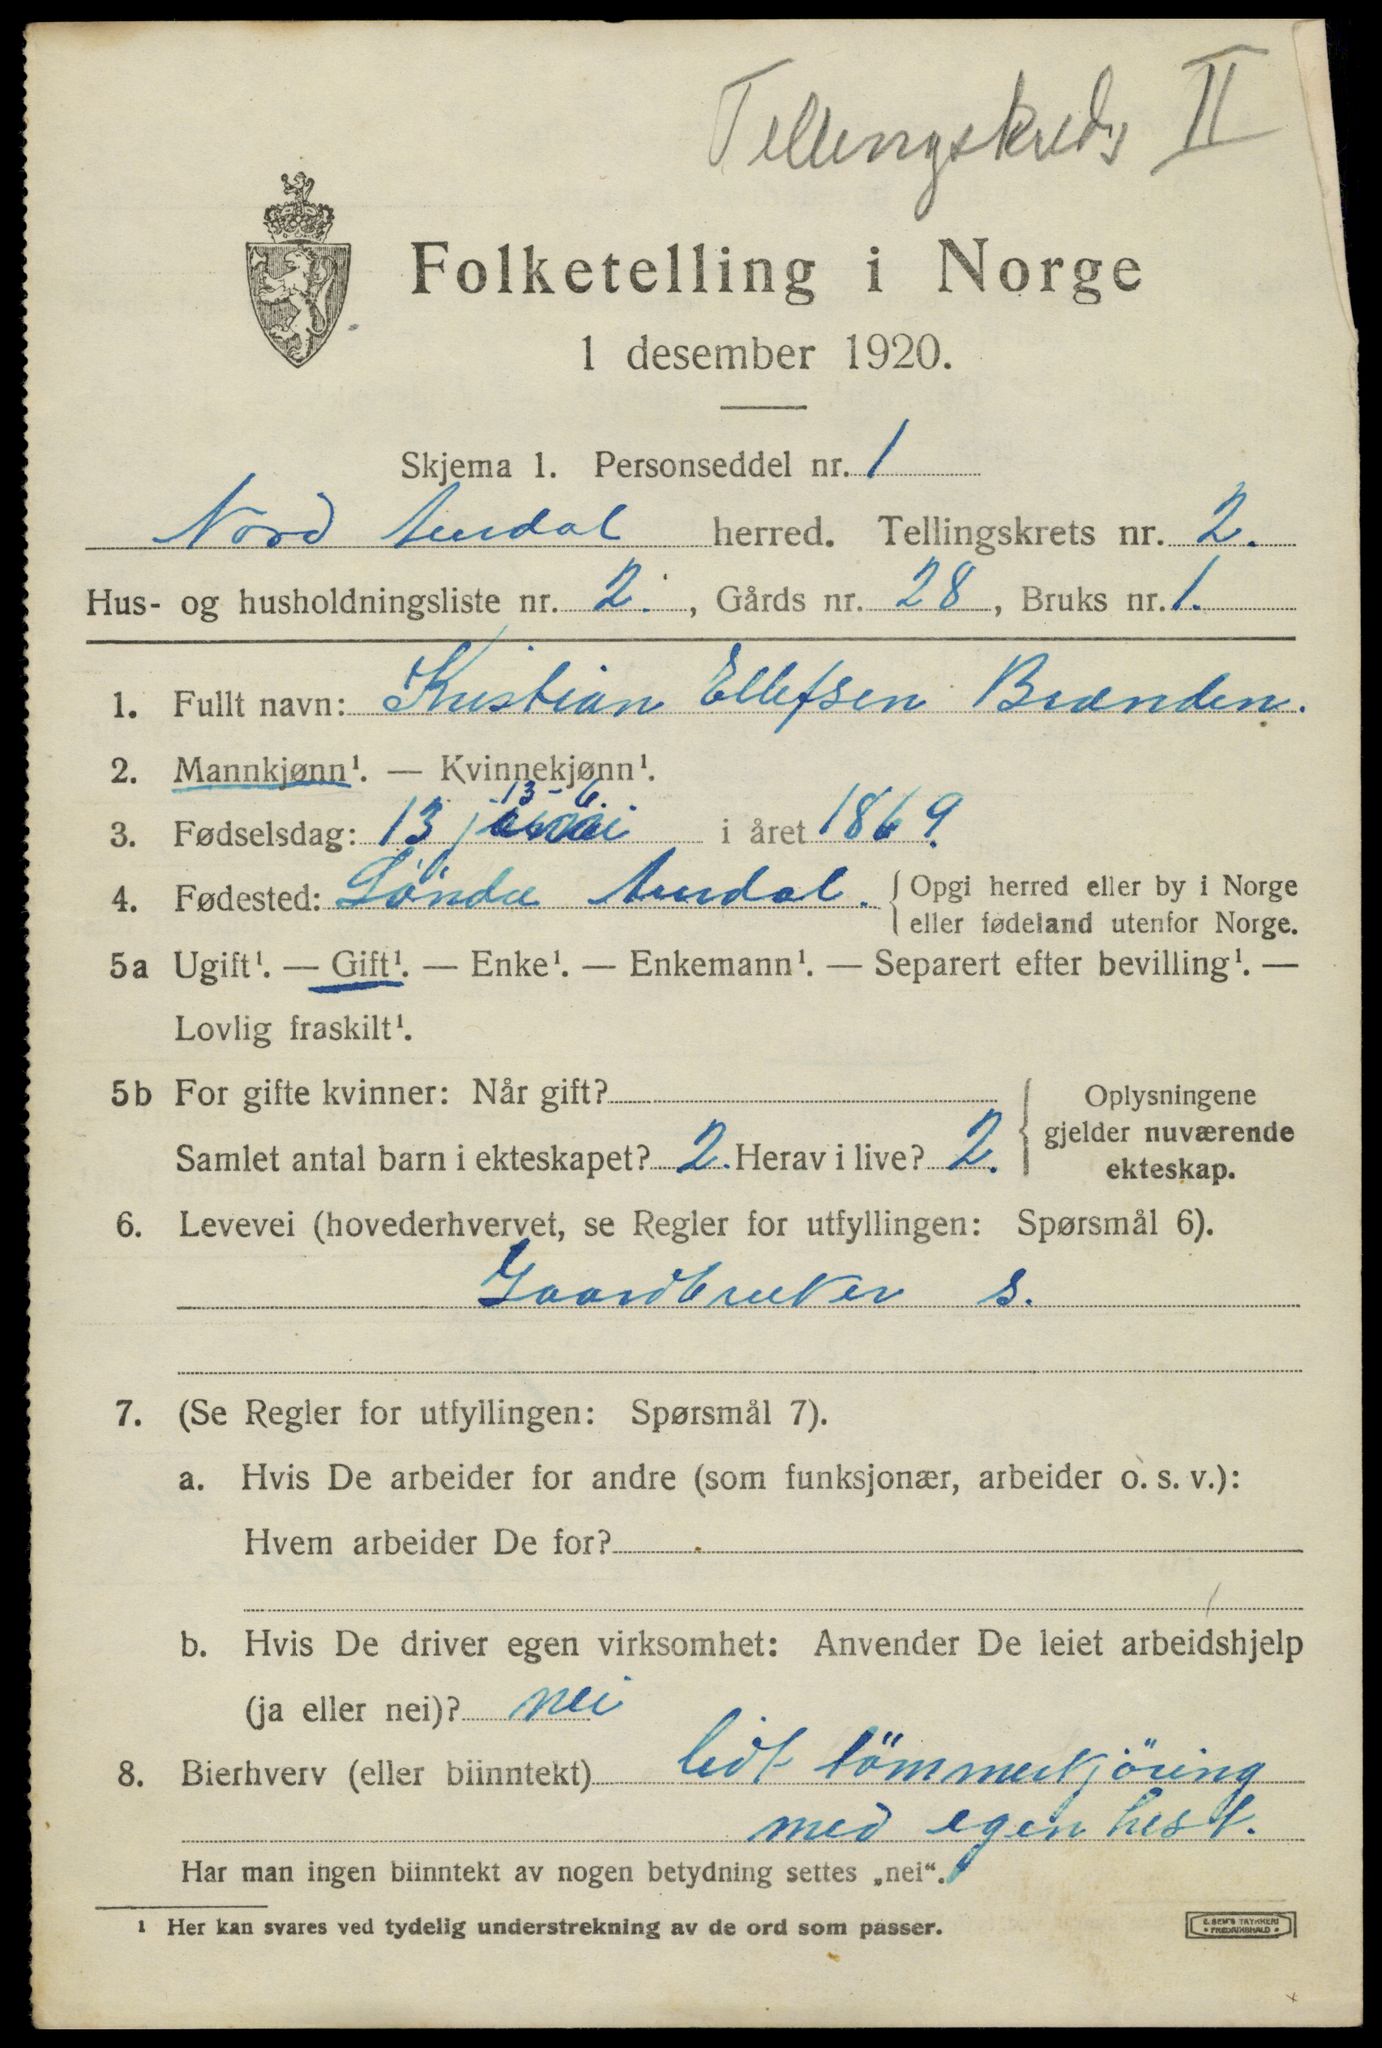 Tellingskreds II
Folketelling i Norge
1 desember 1920.
Skjema 1. Personseddel nr. 1
Nord Aurdal herred. Tellingskrets nr. 2.
Hus- og husholdningsliste nr. 2. , Gårds nr. 28 , Bruks nr. 1.
1. Fullt navn: Kristian Ellefsen Brænden.
2. Mannkjønn¹. — Kvinnekjønn¹.
13-6.
3. Fødselsdag: 13 i året 1869.
4. Fødested: Søndre Aurdal. Opgi herred eller by i Norge
eller fødeland utenfor Norge.
5a Ugift¹. — Gift¹. — Enke¹. — Enkemann¹. — Separert efter bevilling¹. —
Lovlig fraskilt¹.
5b For gifte kvinner: Når gift?
Samlet antal barn i ekteskapet? 2. Herav i live? 2.
Oplysningene
gjelder nuværende
ekteskap.
6. Levevei (hovederhvervet, se Regler for utfyllingen: Spørsmål 6).
Gaardbruker s.
7. (Se Regler for utfyllingen: Spørsmål 7).
a. Hvis De arbeider for andre (som funksjonær, arbeider o. s. v.):
Hvem arbeider De for?
b. Hvis De driver egen virksomhet: Anvender De leiet arbeidshjelp
(ja eller nei)? nei
8. Bierhverv (eller biinntekt) lidt tömmerkjöring
med egen hest.
Har man ingen biinntekt av nogen betydning settes „nei“.
¹ Her kan svares ved tydelig understrekning av de ord som passer.
E. SEM'S TRYKKERI
• FREDRIKSHALD •